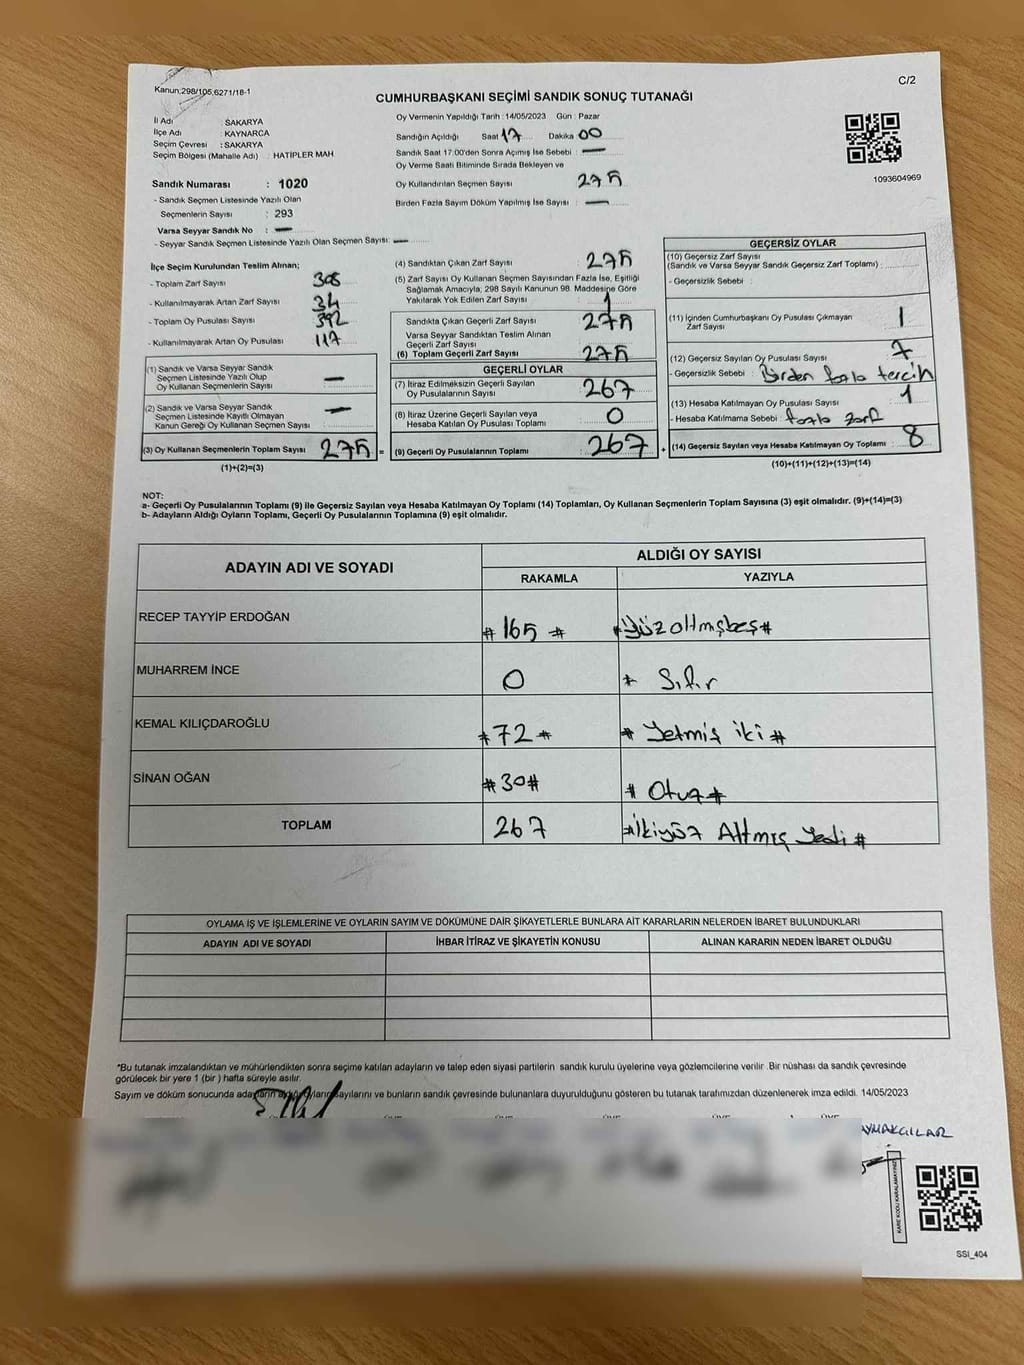 Kanun;298/105,6271/18-1
C/2
CUMHURBAŞKANI SEÇİMİ SANDIK SONUÇ TUTANAĞI
İl Adı : SAKARYA
İlçe Adı : KAYNARCA
Seçim Çevresi : SAKARYA
Seçim Bölgesi (Mahalle Adı) : HATİPLER MAH
Oy Vermenin Yapıldığı Tarih : 14/05/2023 Gün : Pazar
Sandığın Açıldığı Saat 17 Dakika 00
Sandık Saat 17.00'den Sonra Açımış İse Sebebi : —
Oy Verme Saati Bitiminde Sırada Bekleyen ve
Oy Kullandırılan Seçmen Sayısı 275
Birden Fazla Sayım Döküm Yapılmış İse Sayısı : —
1093604969
Sandık Numarası : 1020
- Sandık Seçmen Listesinde Yazılı Olan
Seçmenlerin Sayısı : 293
Varsa Seyyar Sandık No : —
- Seyyar Sandık Seçmen Listesinde Yazılı Olan Seçmen Sayısı: —
İlçe Seçim Kurulundan Teslim Alınan;
- Toplam Zarf Sayısı 308
- Kullanılmayarak Artan Zarf Sayısı 34
- Toplam Oy Pusulası Sayısı 392
- Kullanılmayarak Artan Oy Pusulası 117
(1) Sandık ve Varsa Seyyar Sandık
Seçmen Listesinde Yazılı Olup
Oy Kullanan Seçmenlerin Sayısı —
(2) Sandık ve Varsa Seyyar Sandık
Seçmen Listesinde Kayıtlı Olmayan
Kanun Gereği Oy Kullanan Seçmen Sayısı : —
(3) Oy Kullanan Seçmenlerin Toplam Sayısı 275 =
(1)+(2)=(3)
(4) Sandıktan Çıkan Zarf Sayısı : 275
(5) Zarf Sayısı Oy Kullanan Seçmen Sayısından Fazla İse, Eşitliği
Sağlamak Amacıyla, 298 Sayılı Kanunun 98. Maddesine Göre
Yakılarak Yok Edilen Zarf Sayısı : 1
Sandıkta Çıkan Geçerli Zarf Sayısı : 275
Varsa Seyyar Sandıktan Teslim Alınan
Geçerli Zarf Sayısı
(6) Toplam Geçerli Zarf Sayısı : 275
GEÇERLİ OYLAR
(7) İtiraz Edilmeksizin Geçerli Sayılan
Oy Pusulalarının Sayısı : 267
(8) İtiraz Üzerine Geçerli Sayılan veya
Hesaba Katılan Oy Pusulası Toplamı : 0
(9) Geçerli Oy Pusulalarının Toplamı : 267 +
GEÇERSİZ OYLAR
(10) Geçersiz Zarf Sayısı
(Sandık ve Varsa Seyyar Sandık Geçersiz Zarf Toplamı) :
- Geçersizlik Sebebi :
(11) İçinden Cumhurbaşkanı Oy Pusulası Çıkmayan
Zarf Sayısı : 1
(12) Geçersiz Sayılan Oy Pusulası Sayısı : 7
- Geçersizlik Sebebi : Birden fazla tercih
(13) Hesaba Katılmayan Oy Pusulası Sayısı : 1
- Hesaba Katılmama Sebebi : fazla zarf
(14) Geçersiz Sayılan veya Hesaba Katılmayan Oy Toplamı : 8
(10)+(11)+(12)+(13)=(14)
NOT:
a- Geçerli Oy Pusulalarının Toplamı (9) ile Geçersiz Sayılan veya Hesaba Katılmayan Oy Toplamı (14) Toplamları, Oy Kullanan Seçmenlerin Toplam Sayısına (3) eşit olmalıdır. (9)+(14)=(3)
b- Adayların Aldığı Oyların Toplamı, Geçerli Oy Pusulalarının Toplamına (9) eşit olmalıdır.
ADAYIN ADI VE SOYADI
ALDIĞI OY SAYISI
RAKAMLA YAZIYLA
RECEP TAYYİP ERDOĞAN # 165 # #Yüzaltmışbeş#
MUHARREM İNCE 0 # Sıfır
KEMAL KILIÇDAROĞLU #72# # Yetmiş iki #
SİNAN OĞAN #30# # Otuz #
TOPLAM 267 #İkiyüz Altmış Yedi #
OYLAMA İŞ VE İŞLEMLERİNE VE OYLARIN SAYIM VE DÖKÜMÜNE DAİR ŞİKAYETLERLE BUNLARA AİT KARARLARIN NELERDEN İBARET BULUNDUKLARI
ADAYIN ADI VE SOYADI İHBAR İTİRAZ VE ŞİKAYETİN KONUSU ALINAN KARARIN NEDEN İBARET OLDUĞU
*Bu tutanak imzalandıktan ve mühürlendikten sonra seçime katılan adayların ve talep eden siyasi partilerin sandık kurulu üyelerine veya gözlemcilerine verilir .Bir nüshası da sandık çevresinde
görülecek bir yere 1 (bir ) hafta süreyle asılır.
Sayım ve döküm sonucunda adayların aldığı oyların sayılarını ve bunların sandık çevresinde bulunanlara duyurulduğunu gösteren bu tutanak tarafımızdan düzenlenerek imza edildi. 14/05/2023
KARE KODU KARALAMAYINIZ
SSI_404